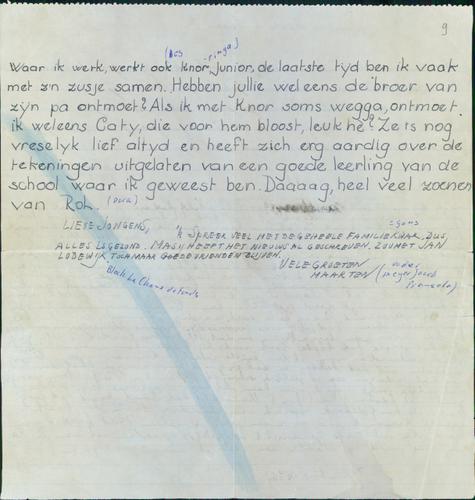 9
(BOS -ringa)
Waar ik werk, werkt ook Knor, junior, de laatste tyd ben ik vaak
met z'n zusje samen. Hebben jullie weleens de broer van
zyn pa ontmoet? Als ik met Knor soms wegga, ontmoet
ik weleens Caty, die voor hem bloost, leuk hè? Ze is nog
vreselyk lief altyd en heeft zich erg aardig over de
tekeningen uitgelaten van een goede leerling van de
school waar ik geweest ben. Daaaag, heel veel zoenen
van Rob. (Dick)
LIEVE JONGENS,
'K SPREEK VEL MET DE GEHEELE FAMILIE KNOR, DUS
ALLES IS GEZOND. MASH HEEFT HET NIEUWS AL GESCHREVEN. ZOU HET JAN
LODEWIJK, TOCH MAAR GOEDE VRIENDEN BLIJVEN.
VELE GROETEN
MAARTEN (vader
(meyer Jacob